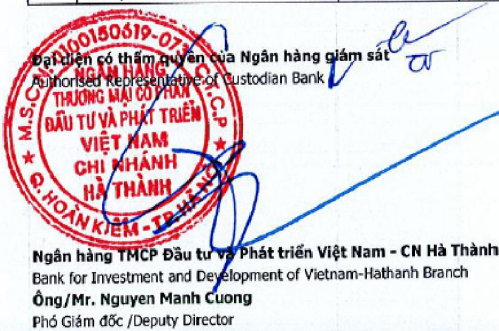 Đại diện có thẩm quyền của Ngân hàng giám sát
Authorised Representative of Custodian Bank
NGÂN HÀNG
THƯƠNG MẠI CỔ PHẦN
ĐẦU TƯ VÀ PHÁT TRIỂN
VIỆT NAM
CHI NHÁNH
HÀ THÀNH
Q. HOÀN KIẾM - TP. HÀ NỘI
Ngân hàng TMCP Đầu tư và Phát triển Việt Nam - CN Hà Thành
Bank for Investment and Development of Vietnam-Hathanh Branch
Ông/Mr. Nguyen Manh Cuong
Phó Giám đốc /Deputy Director